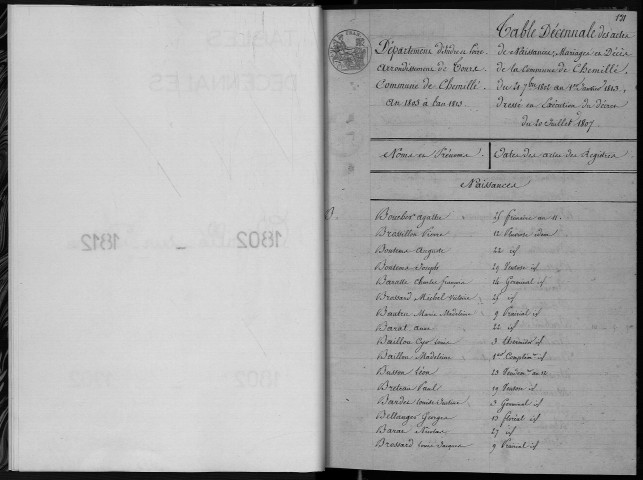 131
Département d'Indre et Loire
Arrondissement de Tours
Commune de Chemillé.
An 1803 à l'an 1813
Table Décennale des actes
de Naissances, Mariages et Décès
de la Commune de Chemillé,
du 21 7bre 1802 au 1er Janvier 1813,
dressé en Exécution du décret
du 20 Juillet 1807.
Noms et Prénoms.
Dates des actes des Registres
Naissances
B.
agathe 25 frimaire an 11.
Brossillon Pierre 12 Pluviose idem
Boutems Auguste 22 id
Boutems Joseph 29 Ventose id
Baratte Charles françois 14 Germinal id
Brossard Michel Victoire 25 id
Marie Madeleine 9 Prairial id
Barat anne 22 id
Baillou Louis 3 Thermidor id
Baillou Madeleine 1er Complém. id
Busson Léon 23 Vendém. an 12
Breteau Paul 19 Ventose id
Bardet Louise 3 Germinal id
Bellanger Georges 13 floréal id
Barat Nicolas 27 id
Brossard Louis Jacques 9 Prairial id
TABLES
DECENNALES
1802 - 1812